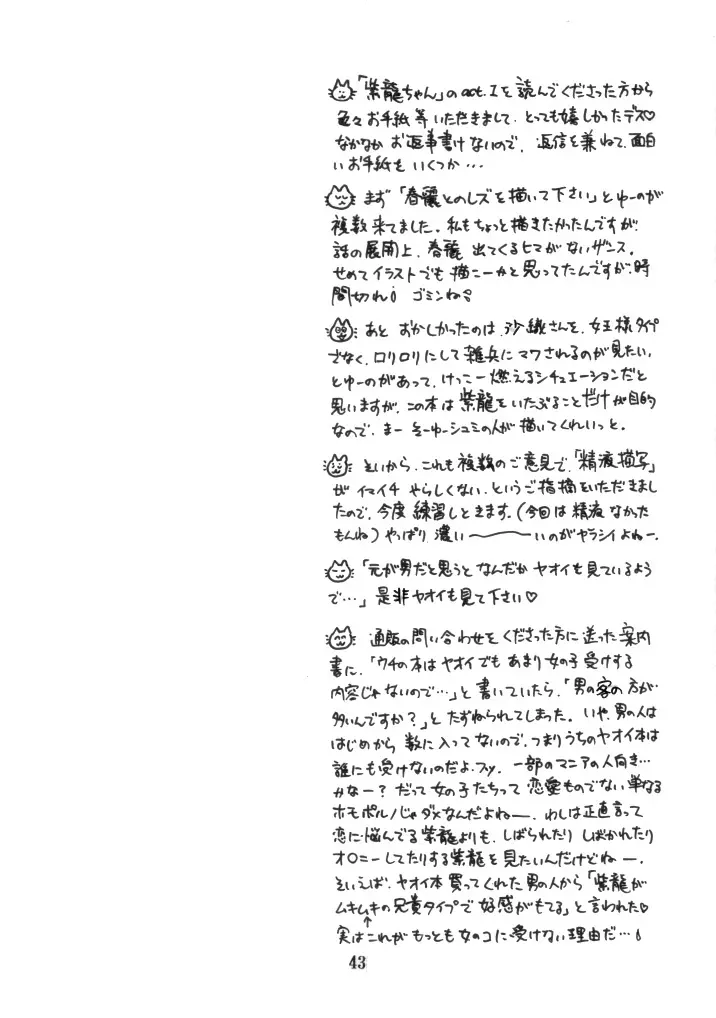 「紫龍ちゃん」のact.Iを読んでくださった方から
色々お手紙等いただきまして、とっても嬉しかったデス♡
なかなかお返事書けないので、返信を兼ねて、面白
いお手紙をいくつか…
まず「春麗とのレズを描いて下さい」とゆーのが
複数来てました。私もちょっと描きたかったんですが、
話の展開上、春麗出てくるヒマがないザンス。
せめてイラストでも描こーかと思ってたんですが、時
間切れ! ゴミンね
あとおかしかったのは、沙織さんを、女王様タイプ
でなく、ロリロリにして雑兵にマワされるのが見たい、
とゆーのがあって、けっこー燃えるシチュエーションだと
思いますが、この本は紫龍をいたぶることだけが目的
なので、まーそーゆーシュミの人が描いてくれいっと。
そいから、これも複数のご意見で、「精液描写」
がイマイチやらしくない、というご指摘をいただきまし
たので、今度練習しときます。(今回は精液なかった
もんね)やっぱり濃い〜いのがヤラシイよねー。
「元が男だと思うとなんだかヤオイも見ているよう
で…」是非ヤオイも見て下さい♡
通販の問い合わせをくださった方に送った案内
書に、「ウチの本はヤオイでもあまり女の子受けする
内容じゃないので…」と書いていたら、「男の客の方が
多いんですか?」とたずねられてしまった。いや、男の人は
はじめから数に入ってないので、つまりうちのヤオイ本は
誰にも受けないのだよ、フッ。一部のマニアの人向き…
かなー? だって女の子たちって恋愛ものでない単なる
ホモポルノじゃダメなんだよねー。わしは正直言って
恋に悩んでる紫龍よりも、しばられたりしばかれたり
オ○ニーしてたりする紫龍を見たいんだけどねー。
そいえば、ヤオイ本買ってくれた男の人から「紫龍が
ムキムキの兄貴タイプで好感がもてる」と言われた♡
↑
実はこれがもっとも女のコに受けない理由だ…!
43